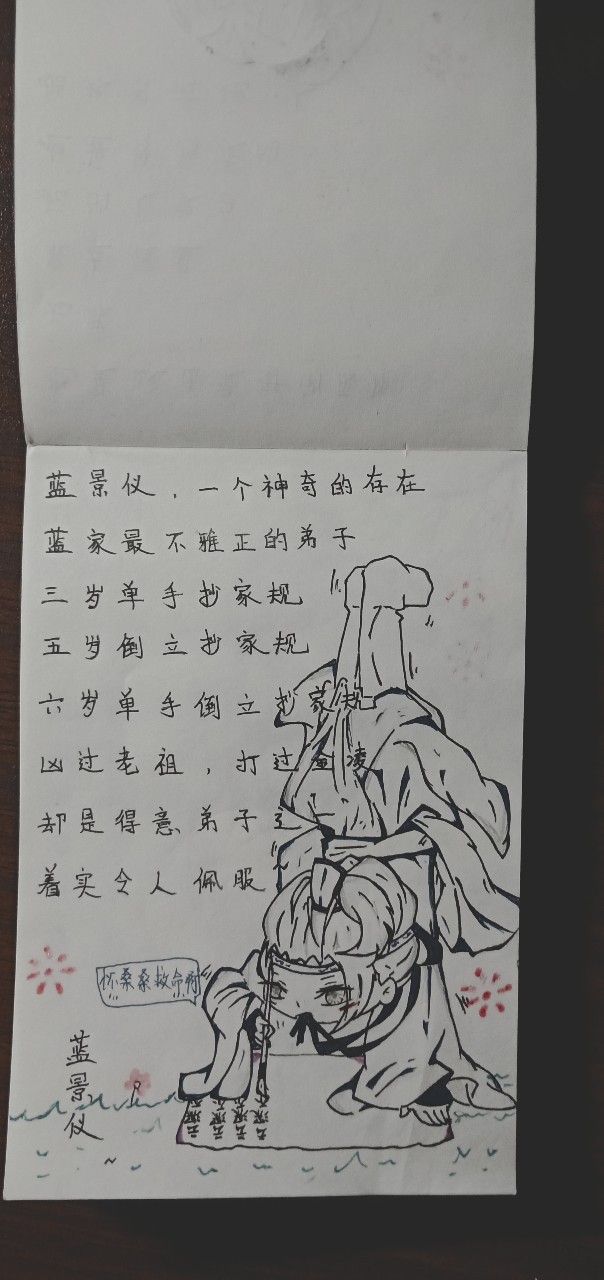 蓝景仪，一个神奇的存在
蓝家最不雅正的弟子
三岁单手抄家规
五岁倒立抄家规
六岁单手倒立抄家规
凶过老祖，打过金凌
却是得意弟子之一
着实令人佩服
怀桑桑救命啊
蓝景仪